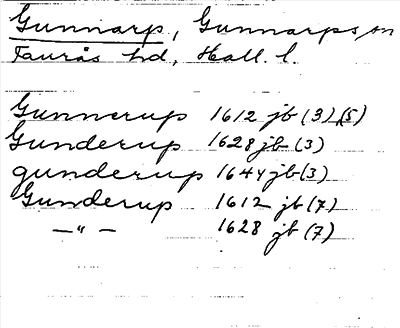 Gunnarp, Gunnarps sn
Faurås hd, Hall. l.
Gunnerup 1612 jb (3) (5)
Gunderup 1628 jb (3)
gunderup 1644 jb (3)
Gunderup 1612 jb (7)
—"— 1628 jb (7)